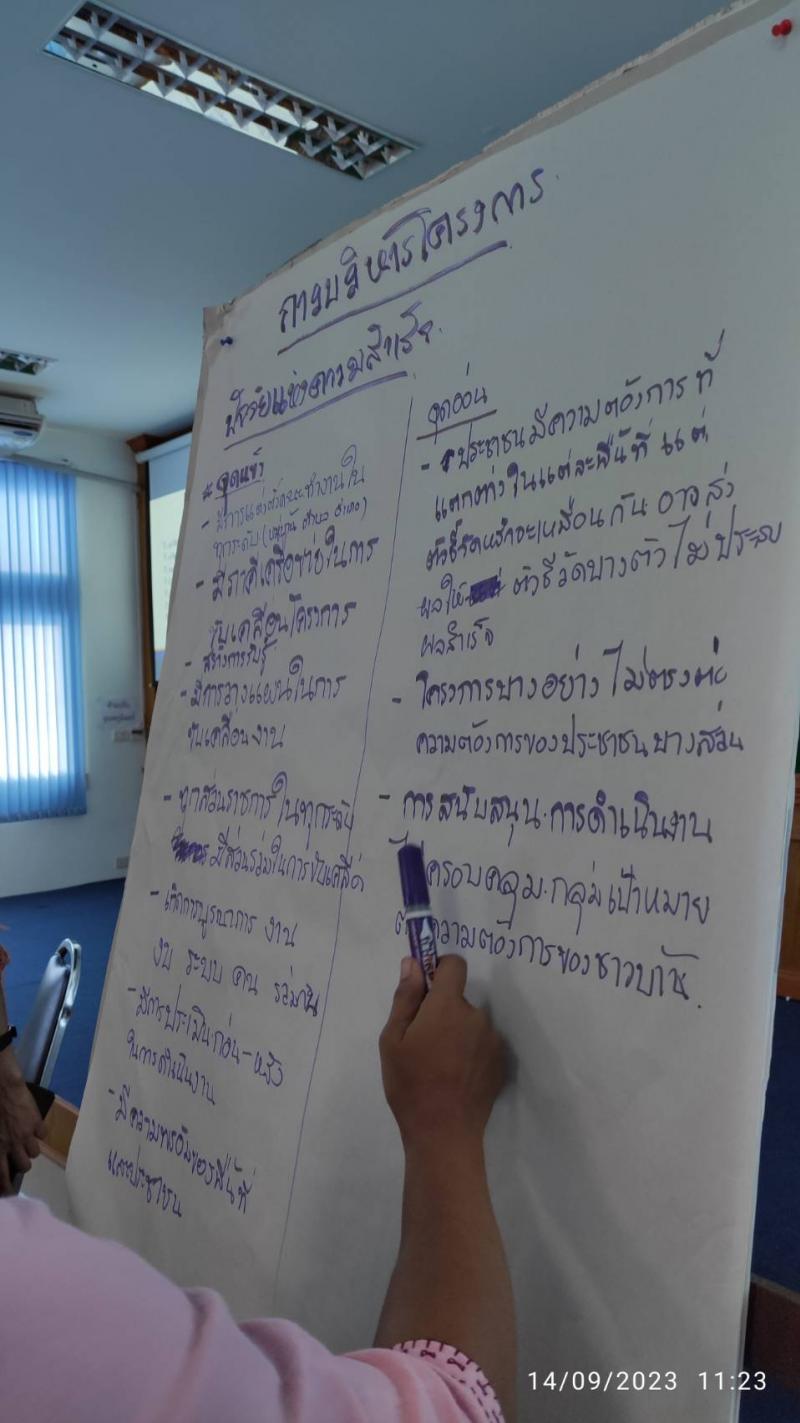 การบริหารโครงการ
ปัจจัยแห่งความสำเร็จ
* จุดแข็ง
- มีการแต่งตั้งคณะทำงานใน
ทุกระดับ (หมู่บ้าน ตำบล อำเภอ)
- มีภาคีเครือข่ายในการ
ขับเคลื่อนโครงการ
- สร้างการรับรู้
- มีการวางแผนในการ
ขับเคลื่อนงาน
- ทุกส่วนราชการในทุกระดับ
มีส่วนร่วมในการขับเคลื่อน
- เกิดการบูรณาการ งาน
งบ ระบบ คน ร่วมกัน
- มีการประเมินก่อน-หลัง
ในการดำเนินงาน
- มีความพร้อมของพื้นที่
และประชาชน
จุดอ่อน
- ประชาชนมีความต้องการ ที่
แตกต่างในแต่ละพื้นที่ แต่
ตัวชี้วัดหลักจะเหมือนกัน อาจส่ง
ผลให้ ตัวชี้วัดบางตัวไม่ประสบ
ผลสำเร็จ
- โครงการบางอย่างไม่ตรงต่อ
ความต้องการของประชาชนบางส่วน
- การสนับสนุนการดำเนินงาน
ครอบคลุมกลุ่มเป้าหมาย
ความต้องการของชาวบ้าน.
14/09/2023 11:23